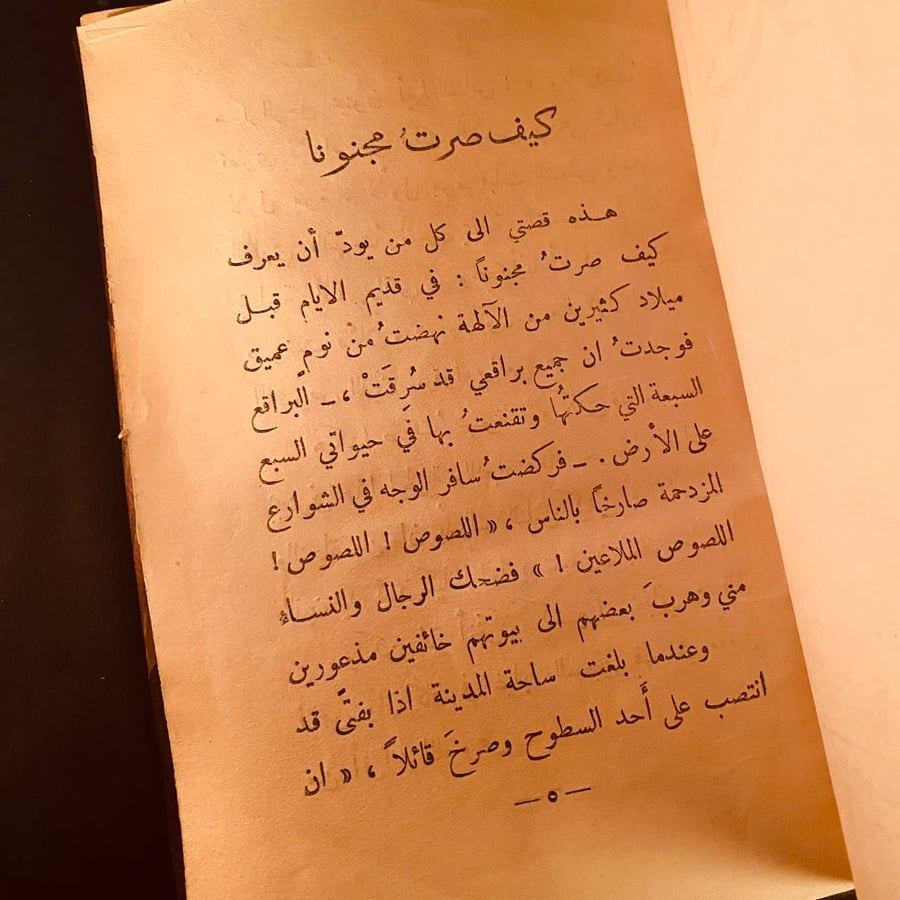 كيف صرتُ مجنونا
هـذه قصتي الى كل من يودّ أن يعرف
كيف صرتُ مجنوناً : في قديم الايام قبـل
ميلاد كثيرين من الآلهة نهضتُ من نوم عميق
فوجدتُ ان جميع براقعي قد سُرِقَتْ ، – البراقع
السبعة التي حـكتُها وتقنعتُ بها في حيواتي السبع
على الأرض . – فركضتُ سافر الوجه في الشوارع
المزدحمة صارخاً بالناس ، « اللصوص ! اللصوص !
اللصوص الملاعين ! » فضحك الرجال والنسـاء
مني وهربَ بعضهم الى بيوتهم خائفين مذعورين
وعندما بلغت ساحة المدينة اذا بفتًى قد
انتصب على أَحد السطوح وصرخَ قائلاً ، « ان
— ٥ —